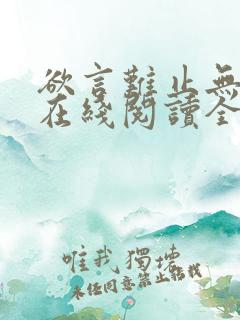 欲言難止無
在綫閱讀全
唯我獨據
未經同意禁止轉載